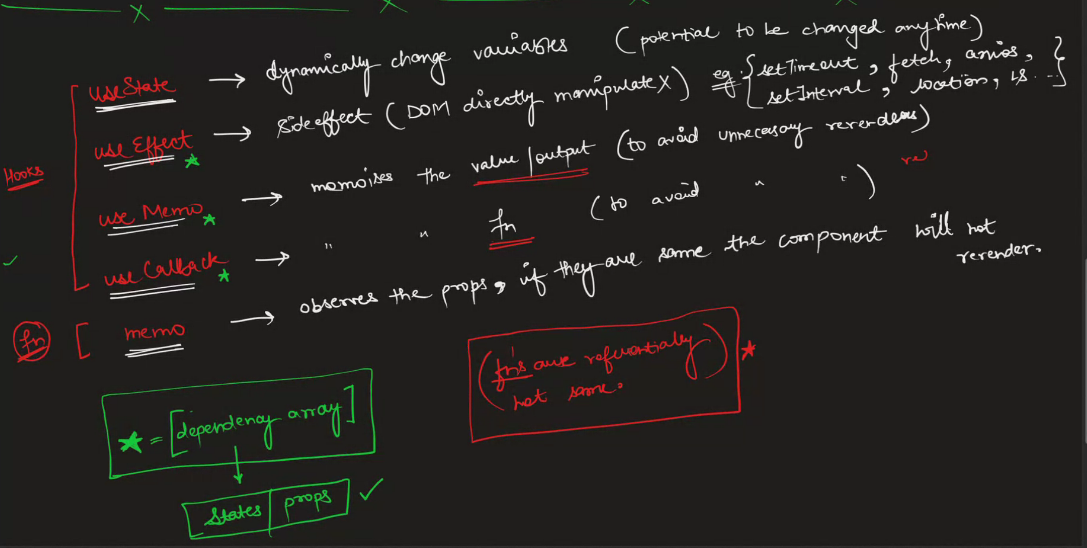 useState → dynamically change variables (potential to be changed anytime)
useEffect ★ → sideeffect (DOM directly manipulate X) eg: {setTimeout, fetch, axios,
setInterval, location, is ...}
Hooks
useMemo ★ → memoises the value/output (to avoid unnecessay rerenders)
re
useCallback ★ → " " fn (to avoid " ")
fn [ memo → observes the props, if they are same the component will not
rerender.
(fn's are referentially
not same.) ★
★ = [dependency array]
states | props ✓